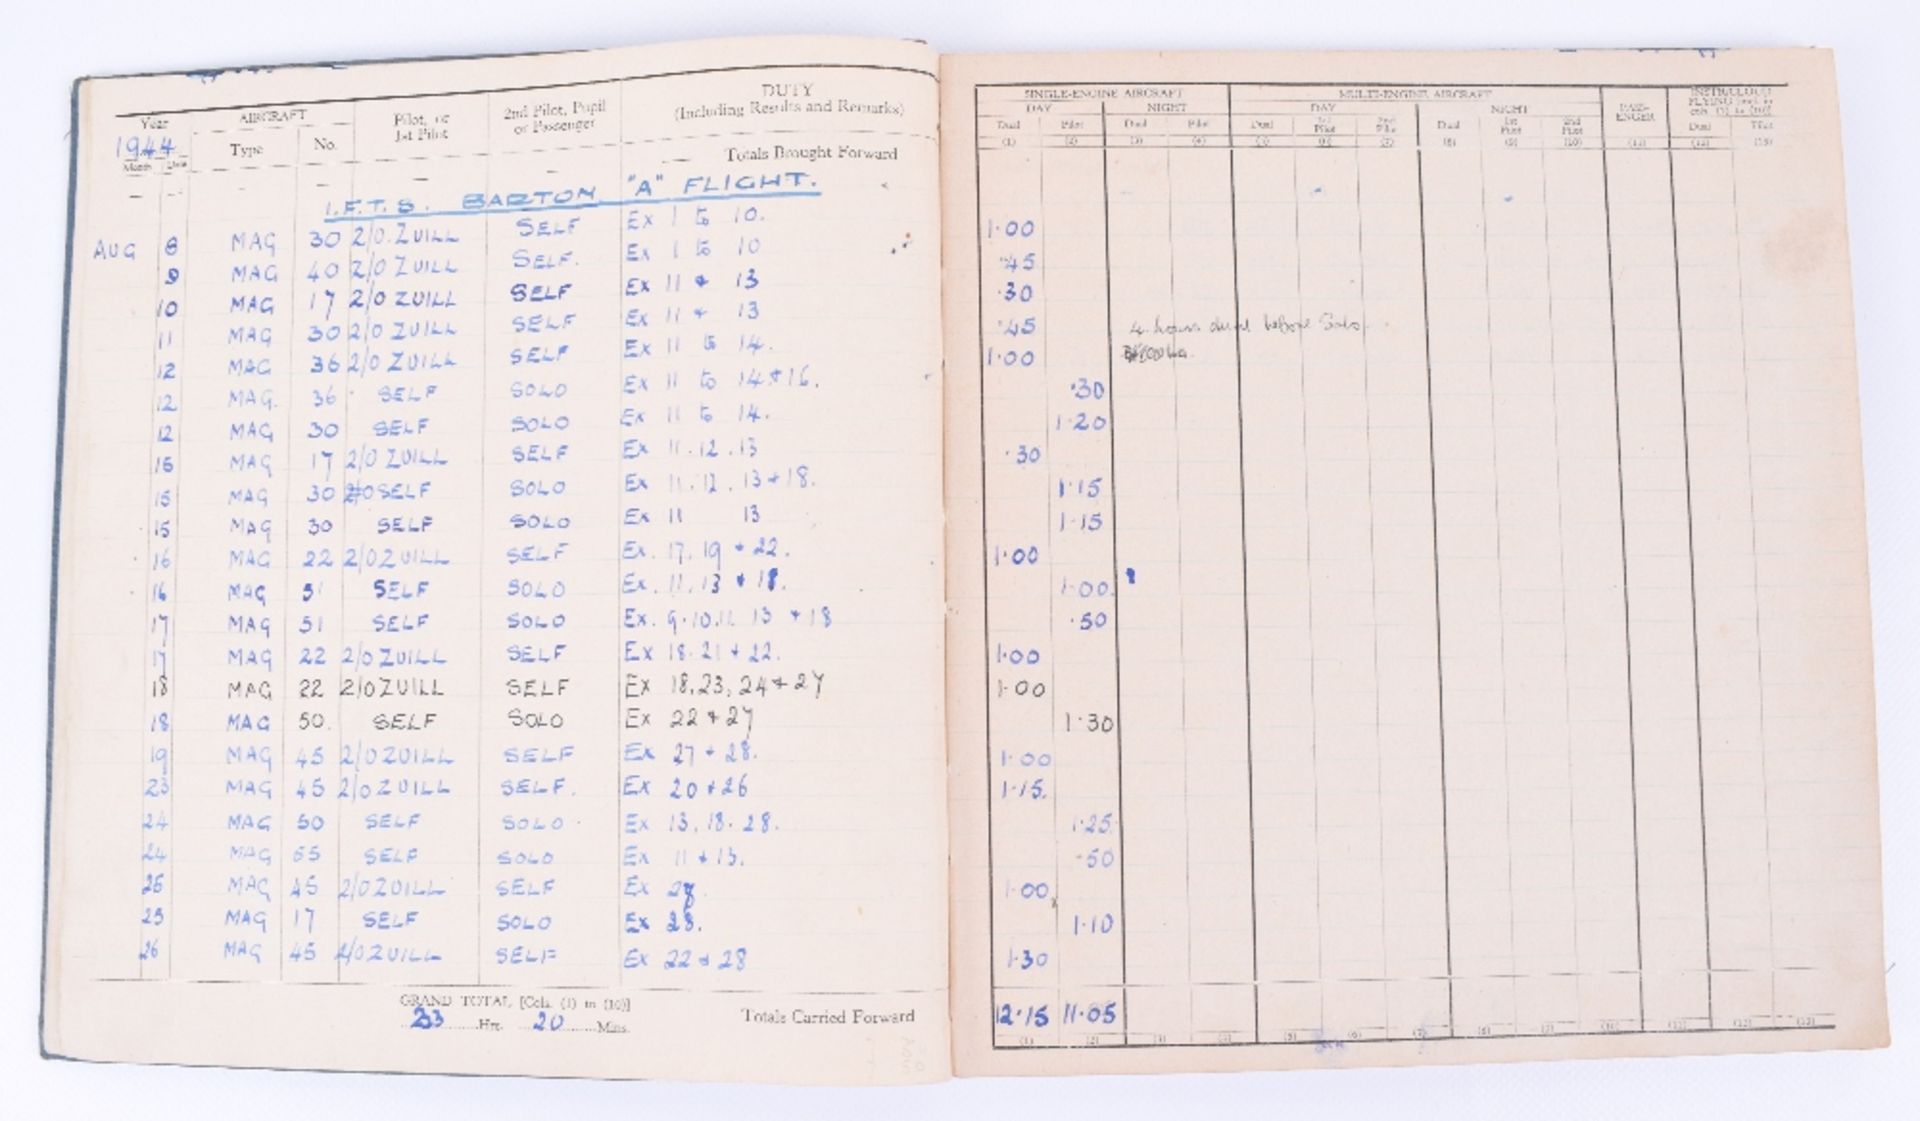 Year AIRCRAFT Pilot, or 1st Pilot 2nd Pilot, Pupil or Passenger DUTY (Including Results and Remarks)
1944 Type No.
Month Date
Totals Brought Forward
I.F.T.S. BARTON "A" FLIGHT.
AUG 8 MAG 30 2/O. ZUILL SELF Ex 1 to 10.
9 MAG 40 2/O ZUILL SELF. Ex 1 to 10
10 MAG 17 2/O ZUILL SELF Ex 11 + 13
11 MAG 30 2/O ZUILL SELF Ex 11 + 13
12 MAG 36 2/O ZUILL SELF Ex 11 to 14.
12 MAG. 36 SELF SOLO Ex 11 to 14 + 16.
12 MAG 30 SELF SOLO Ex 11 to 14.
15 MAG 17 2/O ZUILL SELF Ex 11.12.13
15 MAG 30 SELF SOLO Ex 11.12.13 + 18.
15 MAG 30 SELF SOLO Ex 11 13
16 MAG 22 2/O ZUILL SELF Ex. 17.19 + 22.
16 MAG 51 SELF SOLO Ex. 11.13 + 18.
17 MAG 51 SELF SOLO Ex. 9.10.11 13 + 18
17 MAG 22 2/O ZUILL SELF Ex 18.21 + 22.
18 MAG 22 2/O ZUILL SELF Ex 18,23,24 + 27
18 MAG 50. SELF SOLO Ex 22 + 27
19 MAG 45 2/O ZUILL SELF Ex 27 + 28.
23 MAG 45 2/O ZUILL SELF. Ex 20 + 26
24 MAG 50 SELF SOLO. Ex 13,18.28.
24 MAG 55 SELF SOLO Ex 11 + 13.
25 MAG 45 2/O ZUILL SELF Ex
25 MAG 17 SELF SOLO Ex 28.
26 MAG 45 2/O ZUILL SELF Ex 22 + 28
GRAND TOTAL [Cols. (1) to (10)]
23 Hrs. 20 Mins.
Totals Carried Forward
SINGLE-ENGINE AIRCRAFT MULTI-ENGINE AIRCRAFT PASSENGER INSTR/CLOUD FLYING [Incl. in cols. (1) to (10)]
DAY NIGHT DAY NIGHT
Dual Pilot Dual Pilot Dual 1st Pilot 2nd Pilot Dual 1st Pilot 2nd Pilot Dual Pilot
(1) (2) (3) (4) (5) (6) (7) (8) (9) (10) (11) (12) (13)
1.00
.45
.30
.45 4 hours dual before Solo.
1.00
.30
1.20
.30
1.15
1.15
1.00
1.00.
.50
1.00
1.00
1.30
1.00
1.15.
1.25.
.50
1.00
1.10
1.30
12.15 11.05
(1) (2) (3) (4) (5) (6) (7) (8) (9) (10) (11) (12) (13)